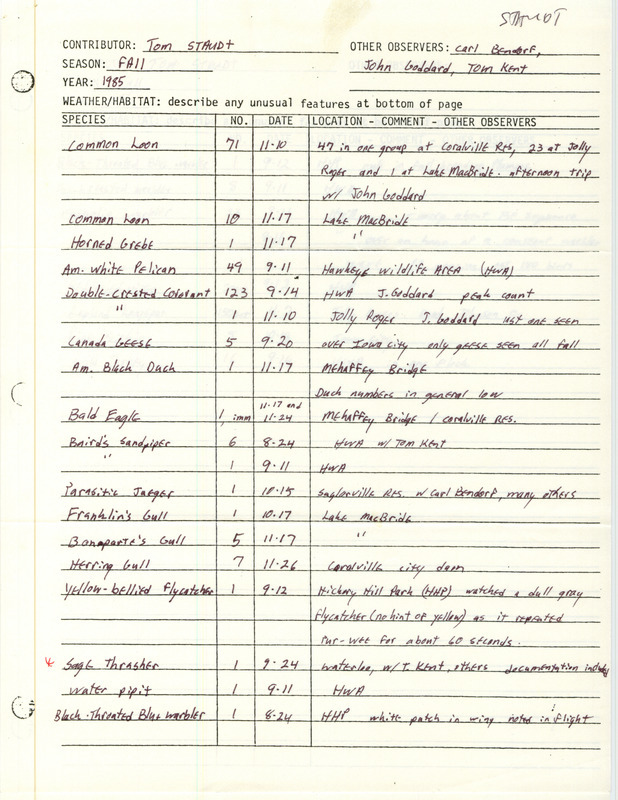 STAUDT
CONTRIBUTOR: Tom STAUDT OTHER OBSERVERS: Carl Bendorf,
SEASON: FAll John Goddard, Tom Kent
YEAR: 1985
WEATHER/HABITAT: describe any unusual features at bottom of page
SPECIES NO. DATE LOCATION - COMMENT - OTHER OBSERVERS
Common Loon 71 11-10 47 in one group at Coralville Res, 23 at Jolly
Roger and 1 at Lake MacBride. afternoon trip
w/ John Goddard
Common Loon 10 11-17 Lake MacBride
Horned Grebe 1 11-17 "
Am. White Pelican 49 9-11 Hawkeye Wildlife Area (HWA)
Double-Crested Cororant 123 9-14 HWA J. Goddard peak count
" 1 11-10 Jolly Roger J. Goddard last one seen
Canada Geese 5 9-20 over Iowa City only geese seen all fall
Am. Black Duck 1 11-17 Mehaffey Bridge
Duck numbers in general low
11-17 and
Bald Eagle 1, imm 11-24 Mehaffey Bridge / Coralville Res.
Baird's Sandpiper 6 8-24 HWA w/ Tom Kent
" 1 9-11 HWA
Parasitic Jaeger 1 10-15 Saylorville Res. w Carl Bendorf, many others
Franklin's Gull 1 10-17 Lake MacBride
Bonaparte's Gull 5 11-17 "
Herring Gull 7 11-26 Coralville city dam
Yellow-bellied Flycatcher 1 9-12 Hickory Hill Park (HHP) watched a dull gray
flycatcher (no hint of yellow) as it repeated
pur-wee for about 60 seconds.
Sage Thrasher 1 9-24 Waterloo, w/ T. Kent, others documentation
Water pipit 1 9-11 HWA
Black-Throated Blue Warbler 1 8-24 HHP white patch in wing noted in flight